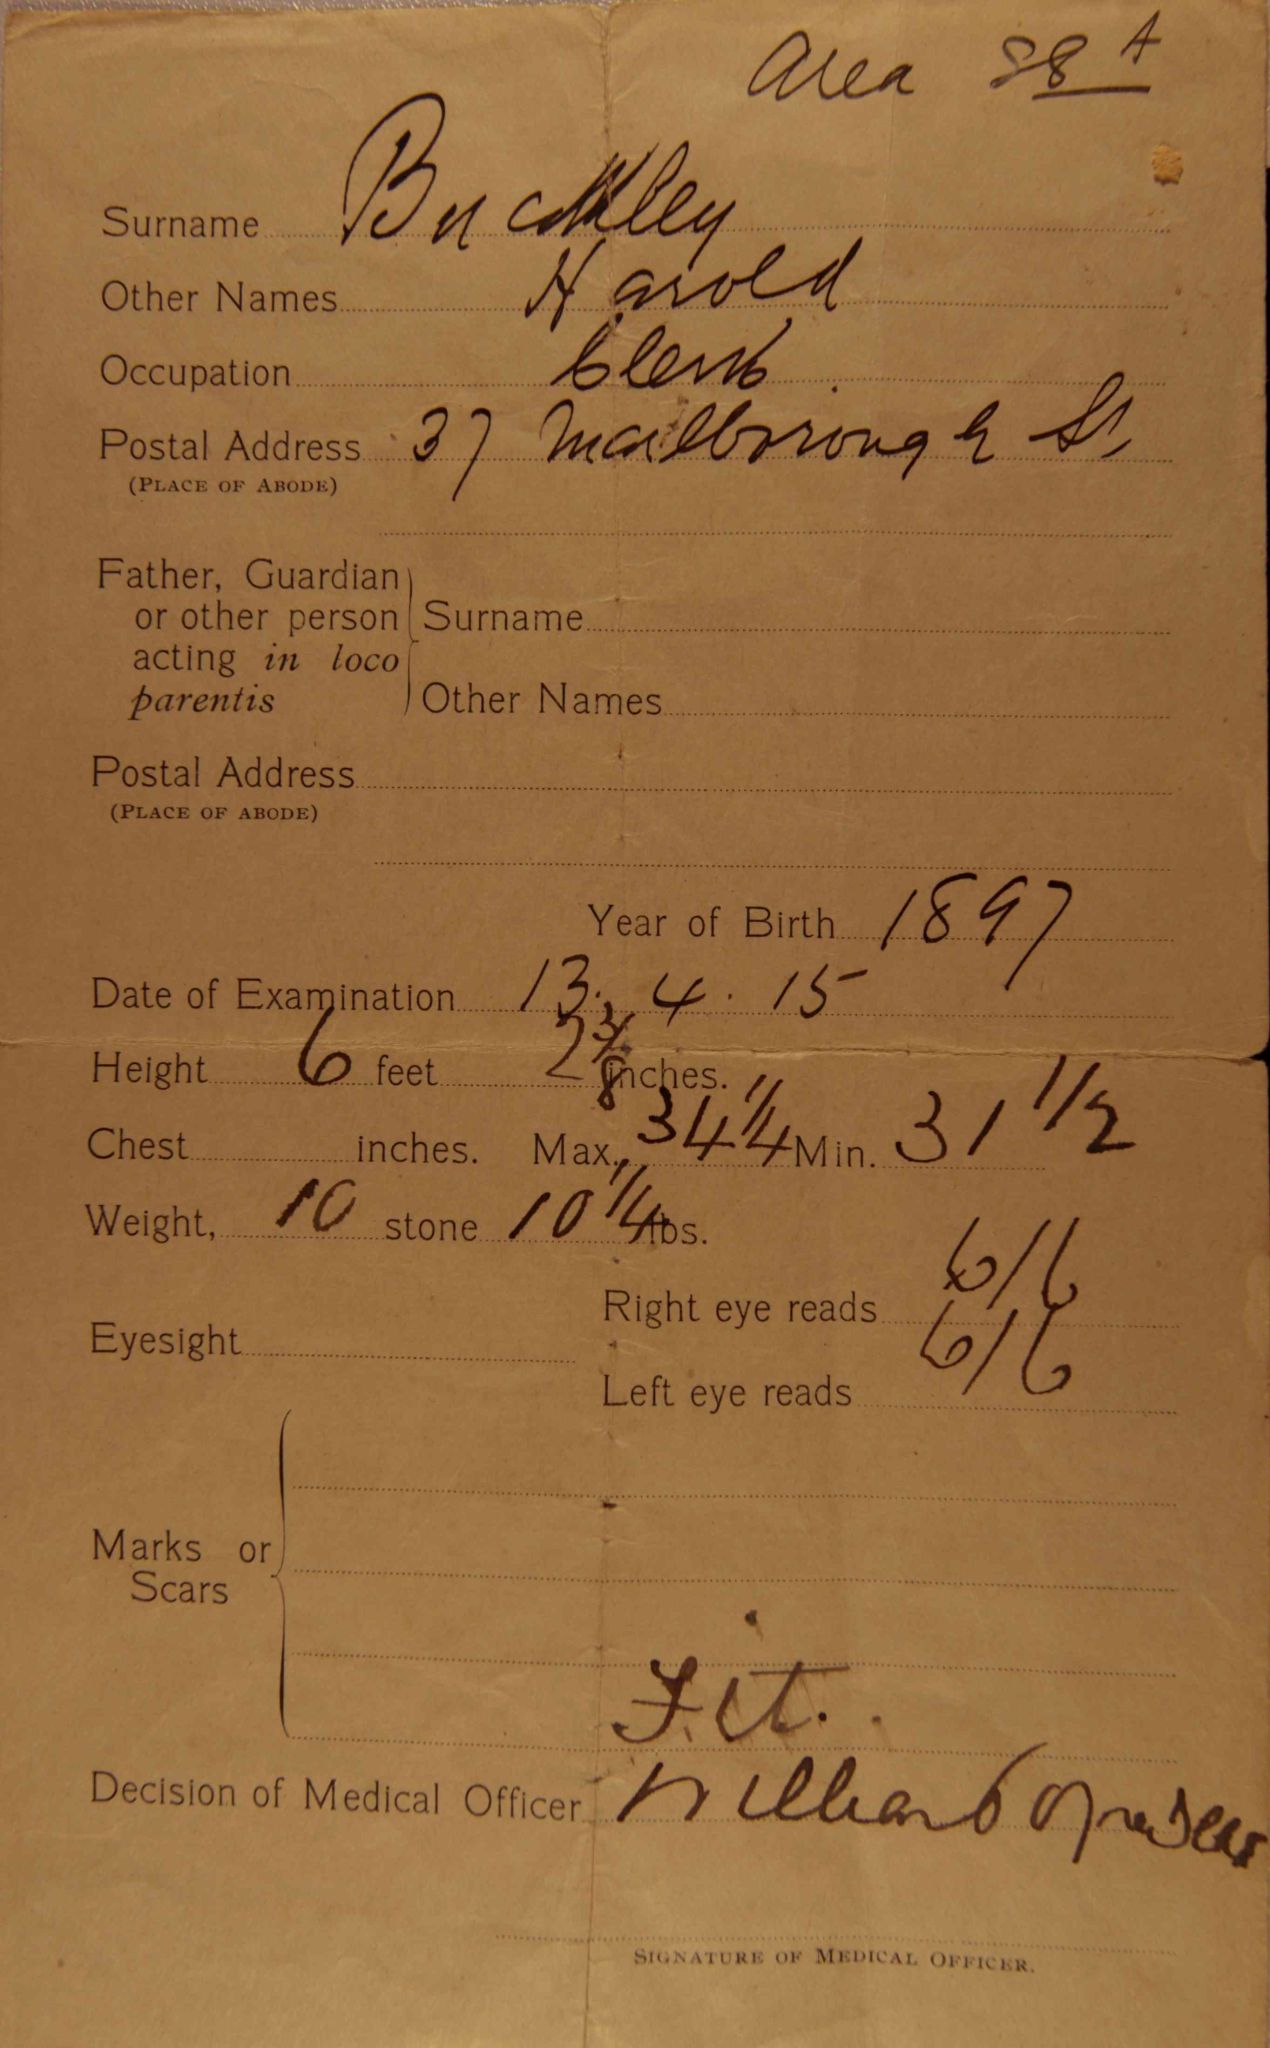 Area 88 A
Surname Buckley
Other Names Harold
Occupation Clerk
Postal Address 37 Marlborough St
(PLACE OF ABODE)
Father, Guardian
or other person
acting in loco
parentis
Surname
Other Names
Postal Address
(PLACE OF ABODE)
Year of Birth 1897
Date of Examination 13. 4. 15
Height 6 feet 2 3/8 inches.
Chest inches. Max. 34 1/4 Min. 31 1/2
Weight, 10 stone 10 1/4 lbs.
Right eye reads 6/6
Eyesight
Left eye reads 6/6
Marks or
Scars
Fit.
Decision of Medical Officer William
SIGNATURE OF MEDICAL OFFICER.